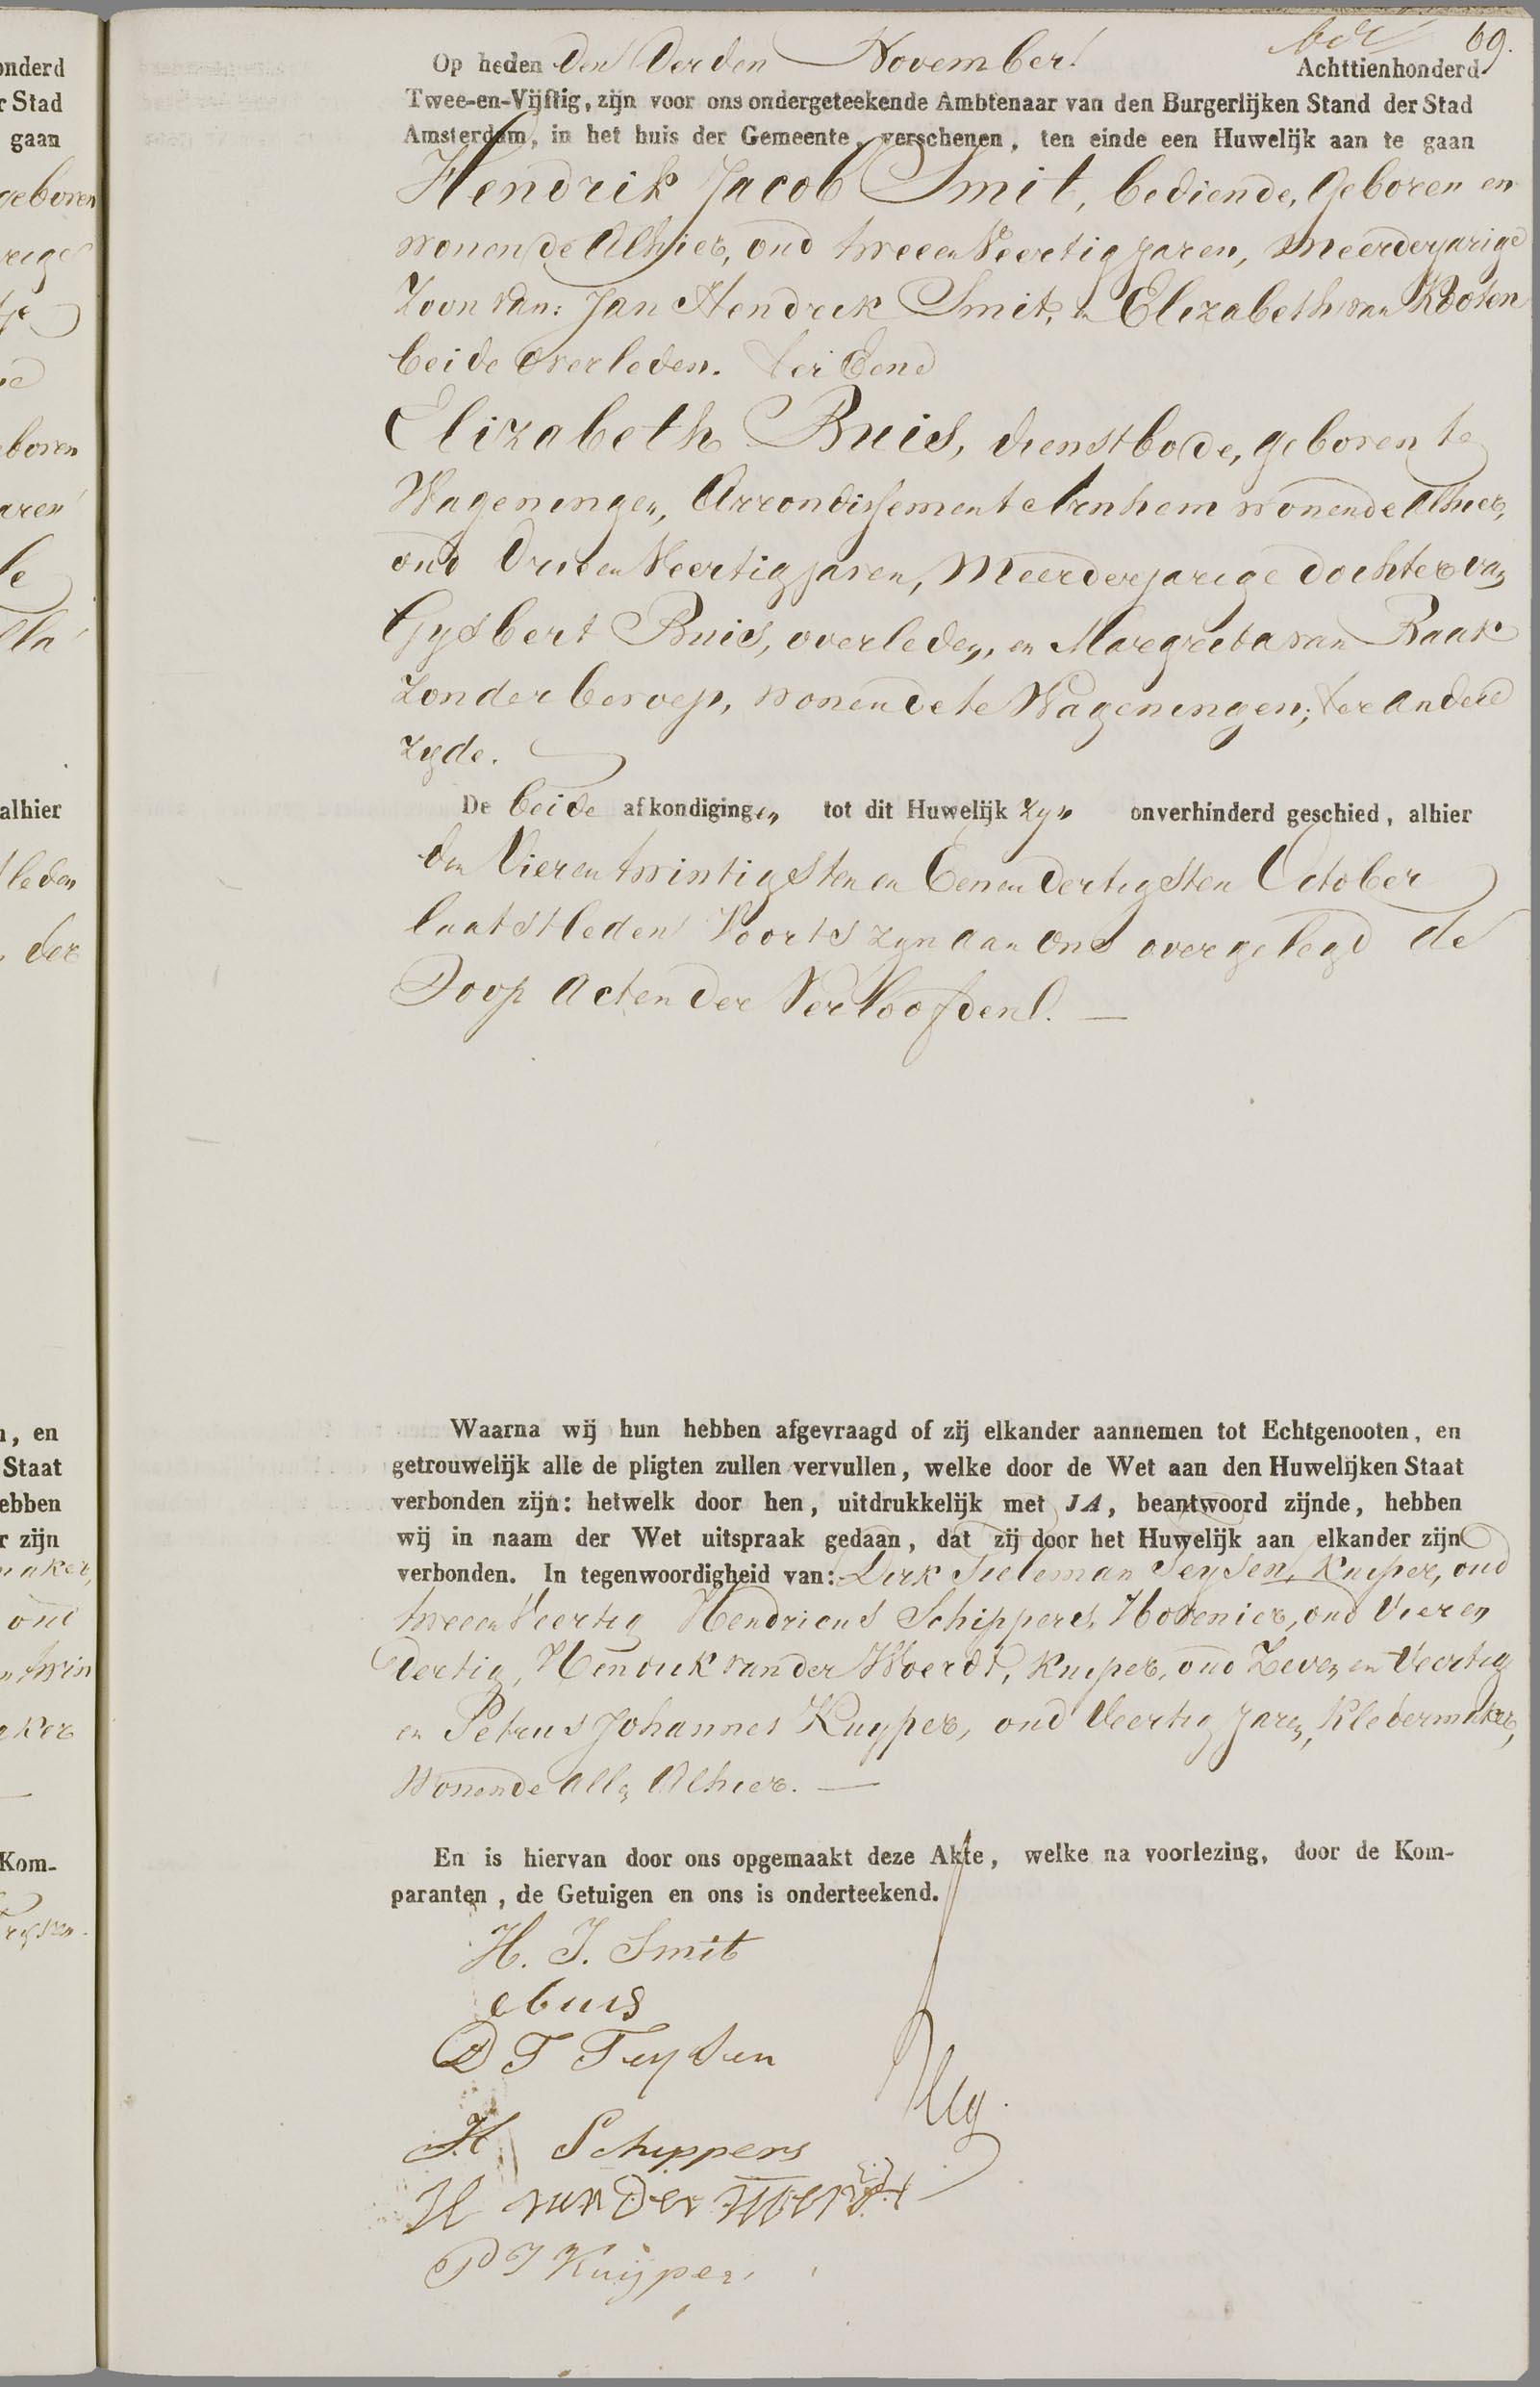 69.
Op heden den Derden November Achttienhonderd
Twee-en-Vijftig, zijn voor ons ondergeteekende Ambtenaar van den Burgerlijken Stand der Stad
Amsterdam, in het huis der Gemeente, verschenen, ten einde een Huwelijk aan te gaan
Hendrik Jacob Smit, bediende, geboren en
wonende Alhier, oud tweeen Veertig jaren, Meerderjarige
Zoon van: Jan Hendrik Smit, en Elizabeth van Kooten
beide overleden. ter Eene
Elizabeth Buis, dienstbode, geboren te
Wageningen, Arrondissement Arnhem wonende Alhier,
oud Drieen Veertig jaren, Meerderjarige dochter van
Gysbert Buis, overleden, en Margreeta van Raak
Zonder beroep, wonende te Wageningen; ter andere
zyde.
De beide afkondigingen tot dit Huwelijk zyn onverhinderd geschied, alhier
den Vieren twintigsten en Eenen dertigsten October
laatstleden Voorts zyn aan Ons overgelegd de
Doop Acten der Verloofden. —
Waarna wij hun hebben afgevraagd of zij elkander aannemen tot Echtgenooten, en
getrouwelijk alle de pligten zullen vervullen, welke door de Wet aan den Huwelijken Staat
verbonden zijn: hetwelk door hen, uitdrukkelijk met JA, beantwoord zijnde, hebben
wij in naam der Wet uitspraak gedaan, dat zij door het Huwelijk aan elkander zijn
verbonden. In tegenwoordigheid van: Dirk Tieleman Teysen, Kuiper, oud
tweeen Veertig Hendricus Schippers, Hovenier, oud Vieren
dertig, Hendrik van der Woerdt, Kuiper, oud Zeven en Veertig
en Petrus Johannes Kuyper, oud Veertig jaren, Kledermaker,
Wonende Allen Alhier. —
En is hiervan door ons opgemaakt deze Akte, welke na voorlezing, door de Kom-
paranten, de Getuigen en ons is onderteekend.
H. J. Smit
e buis
D T Teysen
H Schippers
H van der Woerdt
P J Kuijper
onderd
r Stad
gaan
geboren
boren
aren
alhier
leden
der
n, en
Staat
ebben
r zijn
maker,
oud
aker
Kom-